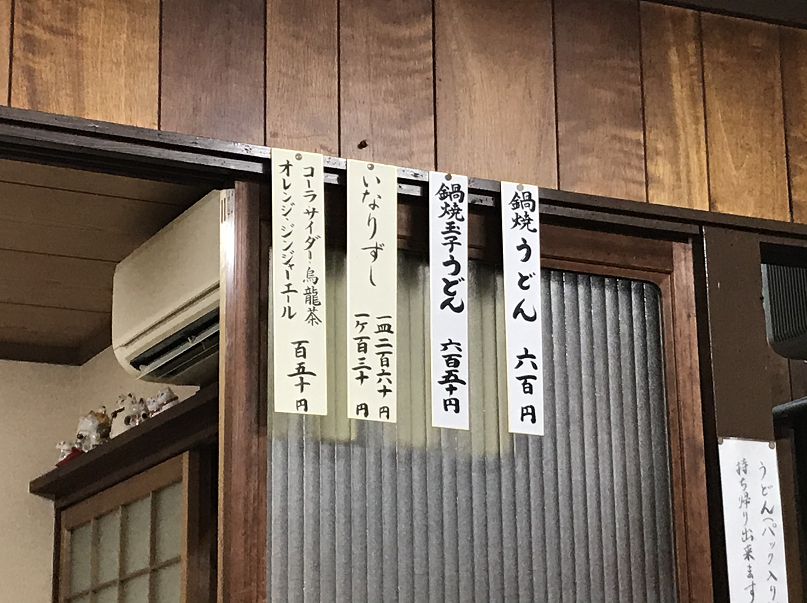 鍋焼うどん 六百円
鍋焼玉子うどん 六百五十円
いなりずし
一皿二百六十円
一ケ百三十円
コーラ サイダー 烏龍茶
オレンジ・ジンジャーエール
百五十円
うどん(パック入り
持ち帰り出来ます